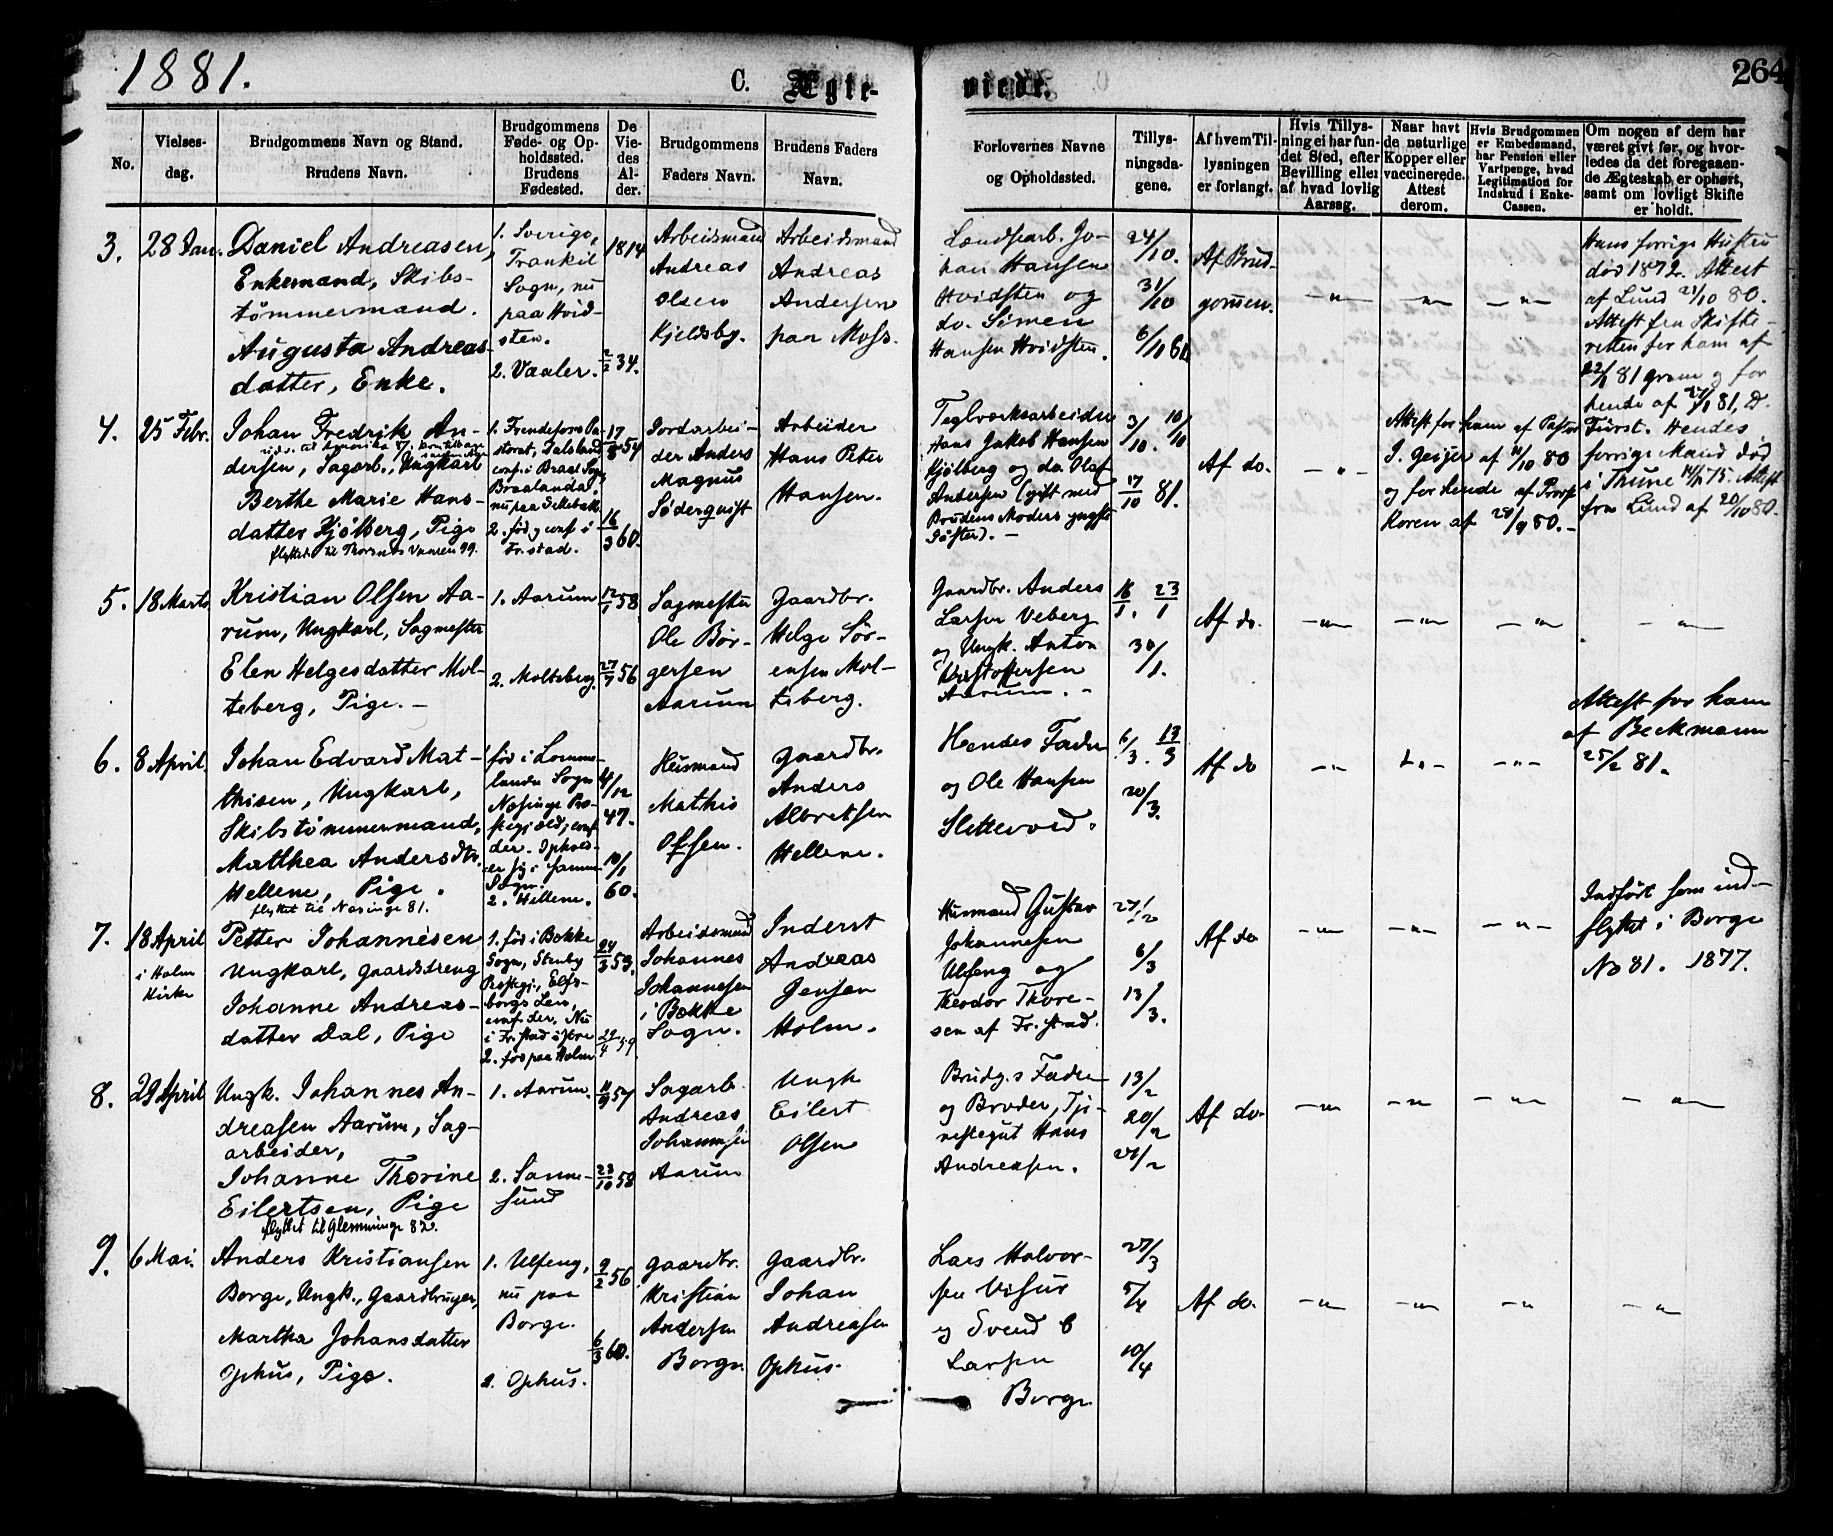 1881.
C. Ægte-
viede.
264
No.
Vielses-
dag.
Brudgommens Navn og Stand.
Brudens Navn.
Brudgommens
Føde- og Op-
holdssted.
Brudens
Fødested.
De
Vie-
des
Al-
der.
Brudgommens
Faders Navn.
Brudens Faders
Navn.
Forlovernes Navne
og Opholdssted.
Tillys-
ningsda-
gene.
Af hvem Til-
lysningen
er forlangt.
Hvis Tillys-
ning ei har fun-
det Sted, efter
Bevilling eller
af hvad lovlig
Aarsag.
Naar havt
de naturlige
Kopper eller
vaccinerede.
Attest
derom.
Hvis Brudgommen
er Embedsmand,
har Pension eller
Vartpenge, hvad
Legitimation for
Indskud i Enke-
Cassen.
Om nogen af dem har
været givt før, og hvor-
ledes da det foregaaen-
de Ægteskab er ophørt,
samt om lovligt Skifte
er holdt.
3.
28 Jan.
Daniel Andreasen,
Enkemand, Skibs-
tømmermand.
Augusta Andreas-
datter, Enke.
1. Sverige,
Trankil
Sogn, nu
paa Hvid-
sten.
2. Vaaler.
1814
2/2 34.
Arbeidsmand
Andreas
Olsen
Kjeldsby.
Arbeidsmand
Andreas
Andersen
paa Moss.
Landharb. Jo-
han Hansen
Hvidsten og
do. Simen
Hansen Hvidsten.
24/10.
31/10
Af Brud-
gommen.
— „ —
— „ —
— „ —
Hans forrige Hustru
død 1872. Attest
af Lund 21/10 80.
Attest fra Skifte-
retten for ham af
81 og for
hende af 81, D.
Fürst. Hendes
forrige Mand død
i Thune 75. Attest
fra Lund af 20/10 80.
4.
25 Febr.
Johan Fredrik An-
dersen, Sagarb., Ungkarl
Berthe Marie Hans-
datter Kjølberg, Pige
flyttet til
1. Frendefors Pa-
storat, Dalsland
conf. i Braal. Sogn
Braalanda.
nu paa
2. fød og conf. i
Fr.stad.
17/8 54
16/3 60.
Jordarbei-
der Anders
Magnus
Söderquist
Arbeider
Hans Peter
Hansen.
Teglværksarbeider
Hans Jakob Hansen
Kjölberg og do. Olaf
Andersen (gift med
Brudens Moders yngste
Søster). —
3/10.
17/10 81.
Af do.
— „ —
Attest for ham af Pastor
J. Geijer af 11/10 80
og for Hende af Provst
Koren af 29/9 80. —
5.
18 Marts
Kristian Olsen Aa-
rum, Ungkarl, Sagmester
Elen Helgesdatter Mol-
teberg, Pige. —
1. Aarum
2. Molteberg.
12/1 58
27/7 56
Sagmester
Ole Bør-
gersen
Aarum
Gaardbr.
Helge Sør-
ensen Mol-
teberg.
Gaardbr. Anders
Larsen Veberg
og Ungk. Anton
Kristoffersen
Aarum. —
16/1. 23/1
30/1.
Af do.
— „ —
— „ —
— „ —
— „ —
6.
8 April.
Johan Edvard Mat-
thisen, Ungkarl,
Skibstømmermand,
Matthea Andersdtr.
Hellene, Pige.
flyttet til Næsinge 81.
fød i Lomme-
landa Sogn
Næsinge Præ-
stegjæld, conf.
der. Ophold-
er sig i samme
Sogn.
2. Hellene.
4/12
47.
10/1
60.
Husmand
Mathis
Olsen.
Gaardbr.
Anders
Albretsen
Hellene.
Hendes Fader
og Ole Hansen
Slettevold.
6/3. 13/3
20/3.
Af do
— „ —
— „ —
— „ —
Attest for ham
af Beckmann
25/2 81.
7.
18 April
i Holm
Kirke
Petter Johannesen
Ungkarl, Gaardsdreng
Johanne Andreas-
datter Dal, Pige
1. fød i Bokke
Sogn, Stenby
Præstegj., Elfs-
borgs Len,
conf. der. Nu
i Fr.stad
2. fød paa Holm
24/3 53.
29/4 59.
Arbeidsmand
Johannes
Johannesen
i Bokke
Sogn.
Inderst
Andreas
Jensen
Holm.
Husmand Gustav
Johannesen
Ulfeng og
Theodor Thore-
sen af Fr.stad.
27/2
6/3
13/3.
Af do
— „ —
— „ —
— „ —
Indført som ind-
flyttet i Borge
No 81. 1877.
8.
29 April
Ungk. Johannes An-
dreasen Aarum, Sag-
arbeider,
Johanne Thorine
Eilertsen, Pige
flyttet til Glemminge 82.
1. Aarum.
2. Sanne-
sund
11/9 57
23/10 58
Sagarb.
Andreas
Johannesen
Aarum
Ungk
Eilert
Olsen
Brudg.s Fader
og Broder, Tje-
nestegut Hans
Andreasen.
13/2
20/2
27/2
Af do.
— „ —
— „ —
— „ —
— „ —
9.
6 Mai.
Anders Kristiansen
Borge, Ungk., Gaardbruger,
Martha Johansdatter
Ophus, Pige.
1. Ulfeng,
nu paa
Borge.
2. Ophus.
9/2 56
6/3 60.
Gaardbr.
Kristian
Andersen
Borge.
Gaardbr.
Johan
Andreasen
Ophus.
Lars Halvor-
sen Visur
og Svend
Larsen
Borge
27/3
5/4
10/4
Af do.
— „ —
— „ —
— „ —
— „ —